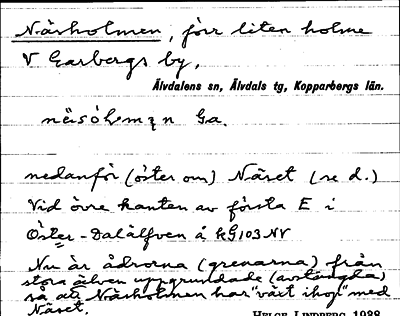 Näsholmen, förr liten holme
V Garbergs by,
Älvdalens sn, Älvdals tg, Kopparbergs län.
Ga.
nedanför (öster om) Näset (se d.)
Vid övre kanten av första E i
Öster-Dalälfven å kG103NV
Nu är ådrorna (grenarna) från
stora älven uppgrundade (avstängda)
så att Näsholmen har "växt ihop" med
Näset.
HELGE LINDBERG 1988